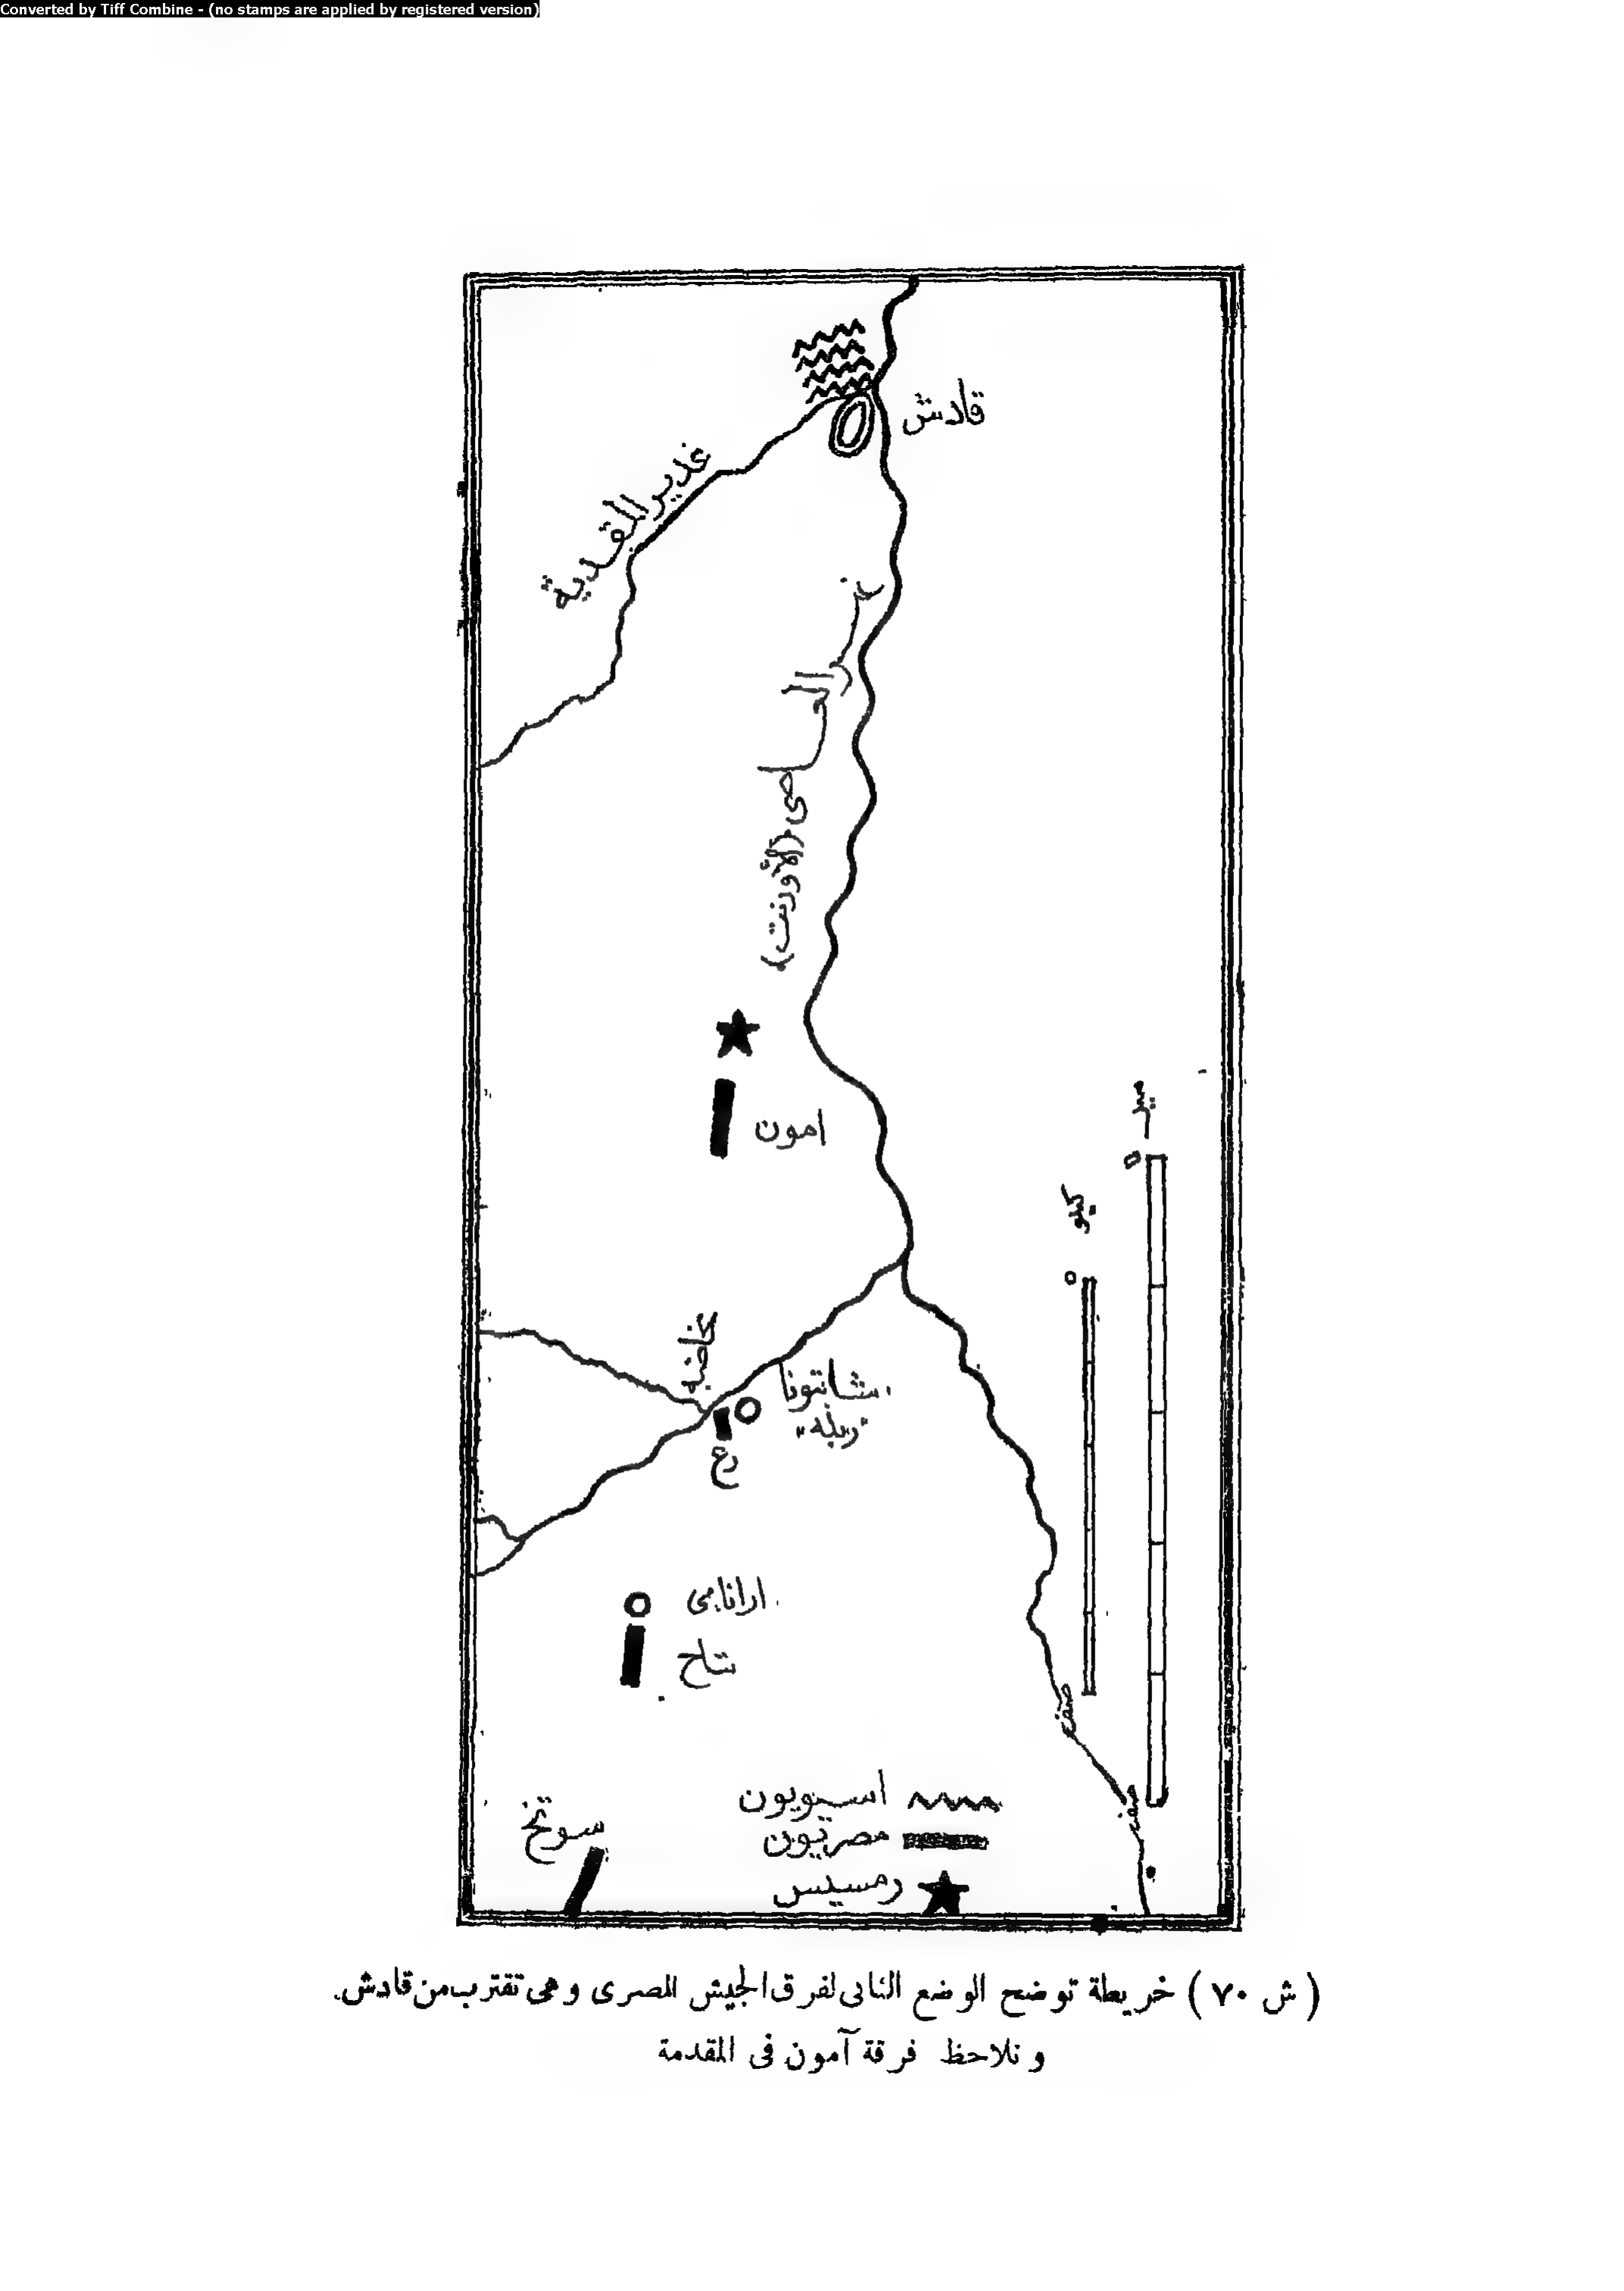 Converted by Tiff Combine - (no stamps are applied by registered version)
قادش
غدير المقدية
نهر العاصى (الأورنت)
امون
ميل
٥
كيلو
٥
مخاضة
شابتونا
"ربله"
رع
ارانامى
بتاح
صفر
صفر
سوتخ
اسيويون
مصريون
رمسيس
( ش ٧٠ ) خريطة توضح الوضع الثانى لفرق الجيش المصرى وهى تقترب من قادش.
ونلاحظ فرقة آمون فى المقدمة